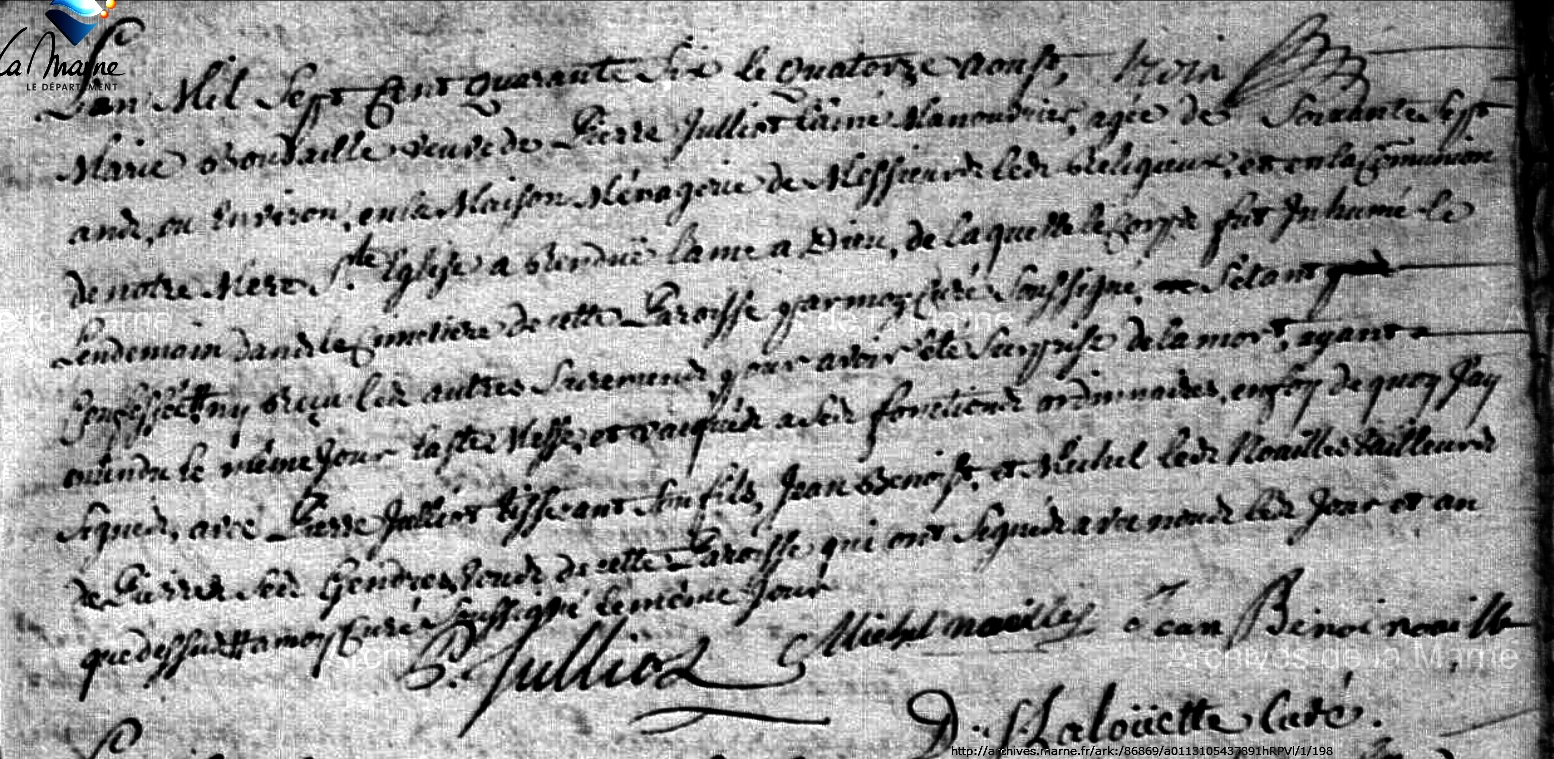 La Marne
LE DÉPARTEMENT
L'an Mil Sept Cent Quarante Six le Quatorze aoust,
Marie veuve de Pierre Julliot l'ainé Manouvrier, agée de Soixante Sept
ans, ou Environ, en la Maison Ménagerie de Messieurs les Religieux, et en la Comunion
de notre Mere Ste Eglise a rendüe lame a Dieu, de laquelle le Corps fut Inhumé le
Lendemain dans le Cimetiere de cette Paroisse par moy Curé Soussigné, Sétant
Confessée ny reçu les autres Sacrements pour avoir été Surprise de la mort, ayant
entendu le même Jour la Ste Messe, et vaquée a Ses fonctions ordinaires, en foy de quoy Jay
Signés, avec Pierre Julliot tisserant Son fils, Jean Benoist, et Michel les Noailles tailleurs
de Pierres Ses Gendres, tous de cette Paroisse qui ont Signés avec nous les Jour et an
que dessus moy Curé Soussigné le même Jour
P. Julliot Michel noailles Jean Benoi noaille
D. Laloüette Curé.
Archives de la Marne
http://archives.marne.fr/ark:/86869/a0113105437891hRPVl/1/198